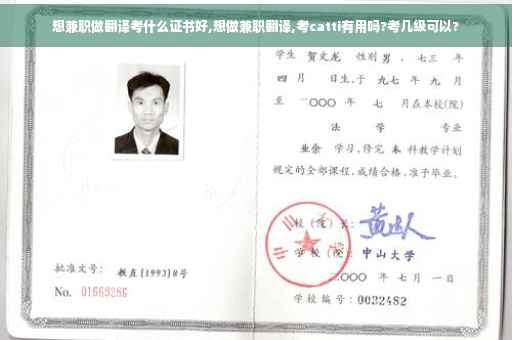 想兼职做翻译考什么证书好,想做兼职翻译,考catti有用吗?考几级可以?
学生 贺文龙 性别 男 、七三 年
四 月 日生,于 九七 年 九 月
至 二〇〇〇 年 七 月在本校(院)
法 学 专业
业余 学习,修完 本 科教学计划
规定的全部课程,成绩合格,准予毕业。
校(院)长:
学校(院): 中山大学
二〇〇〇 年 七 月 一 日
批准文号: 教直[1993]8号
No. 01669286
学校编号: 0032482